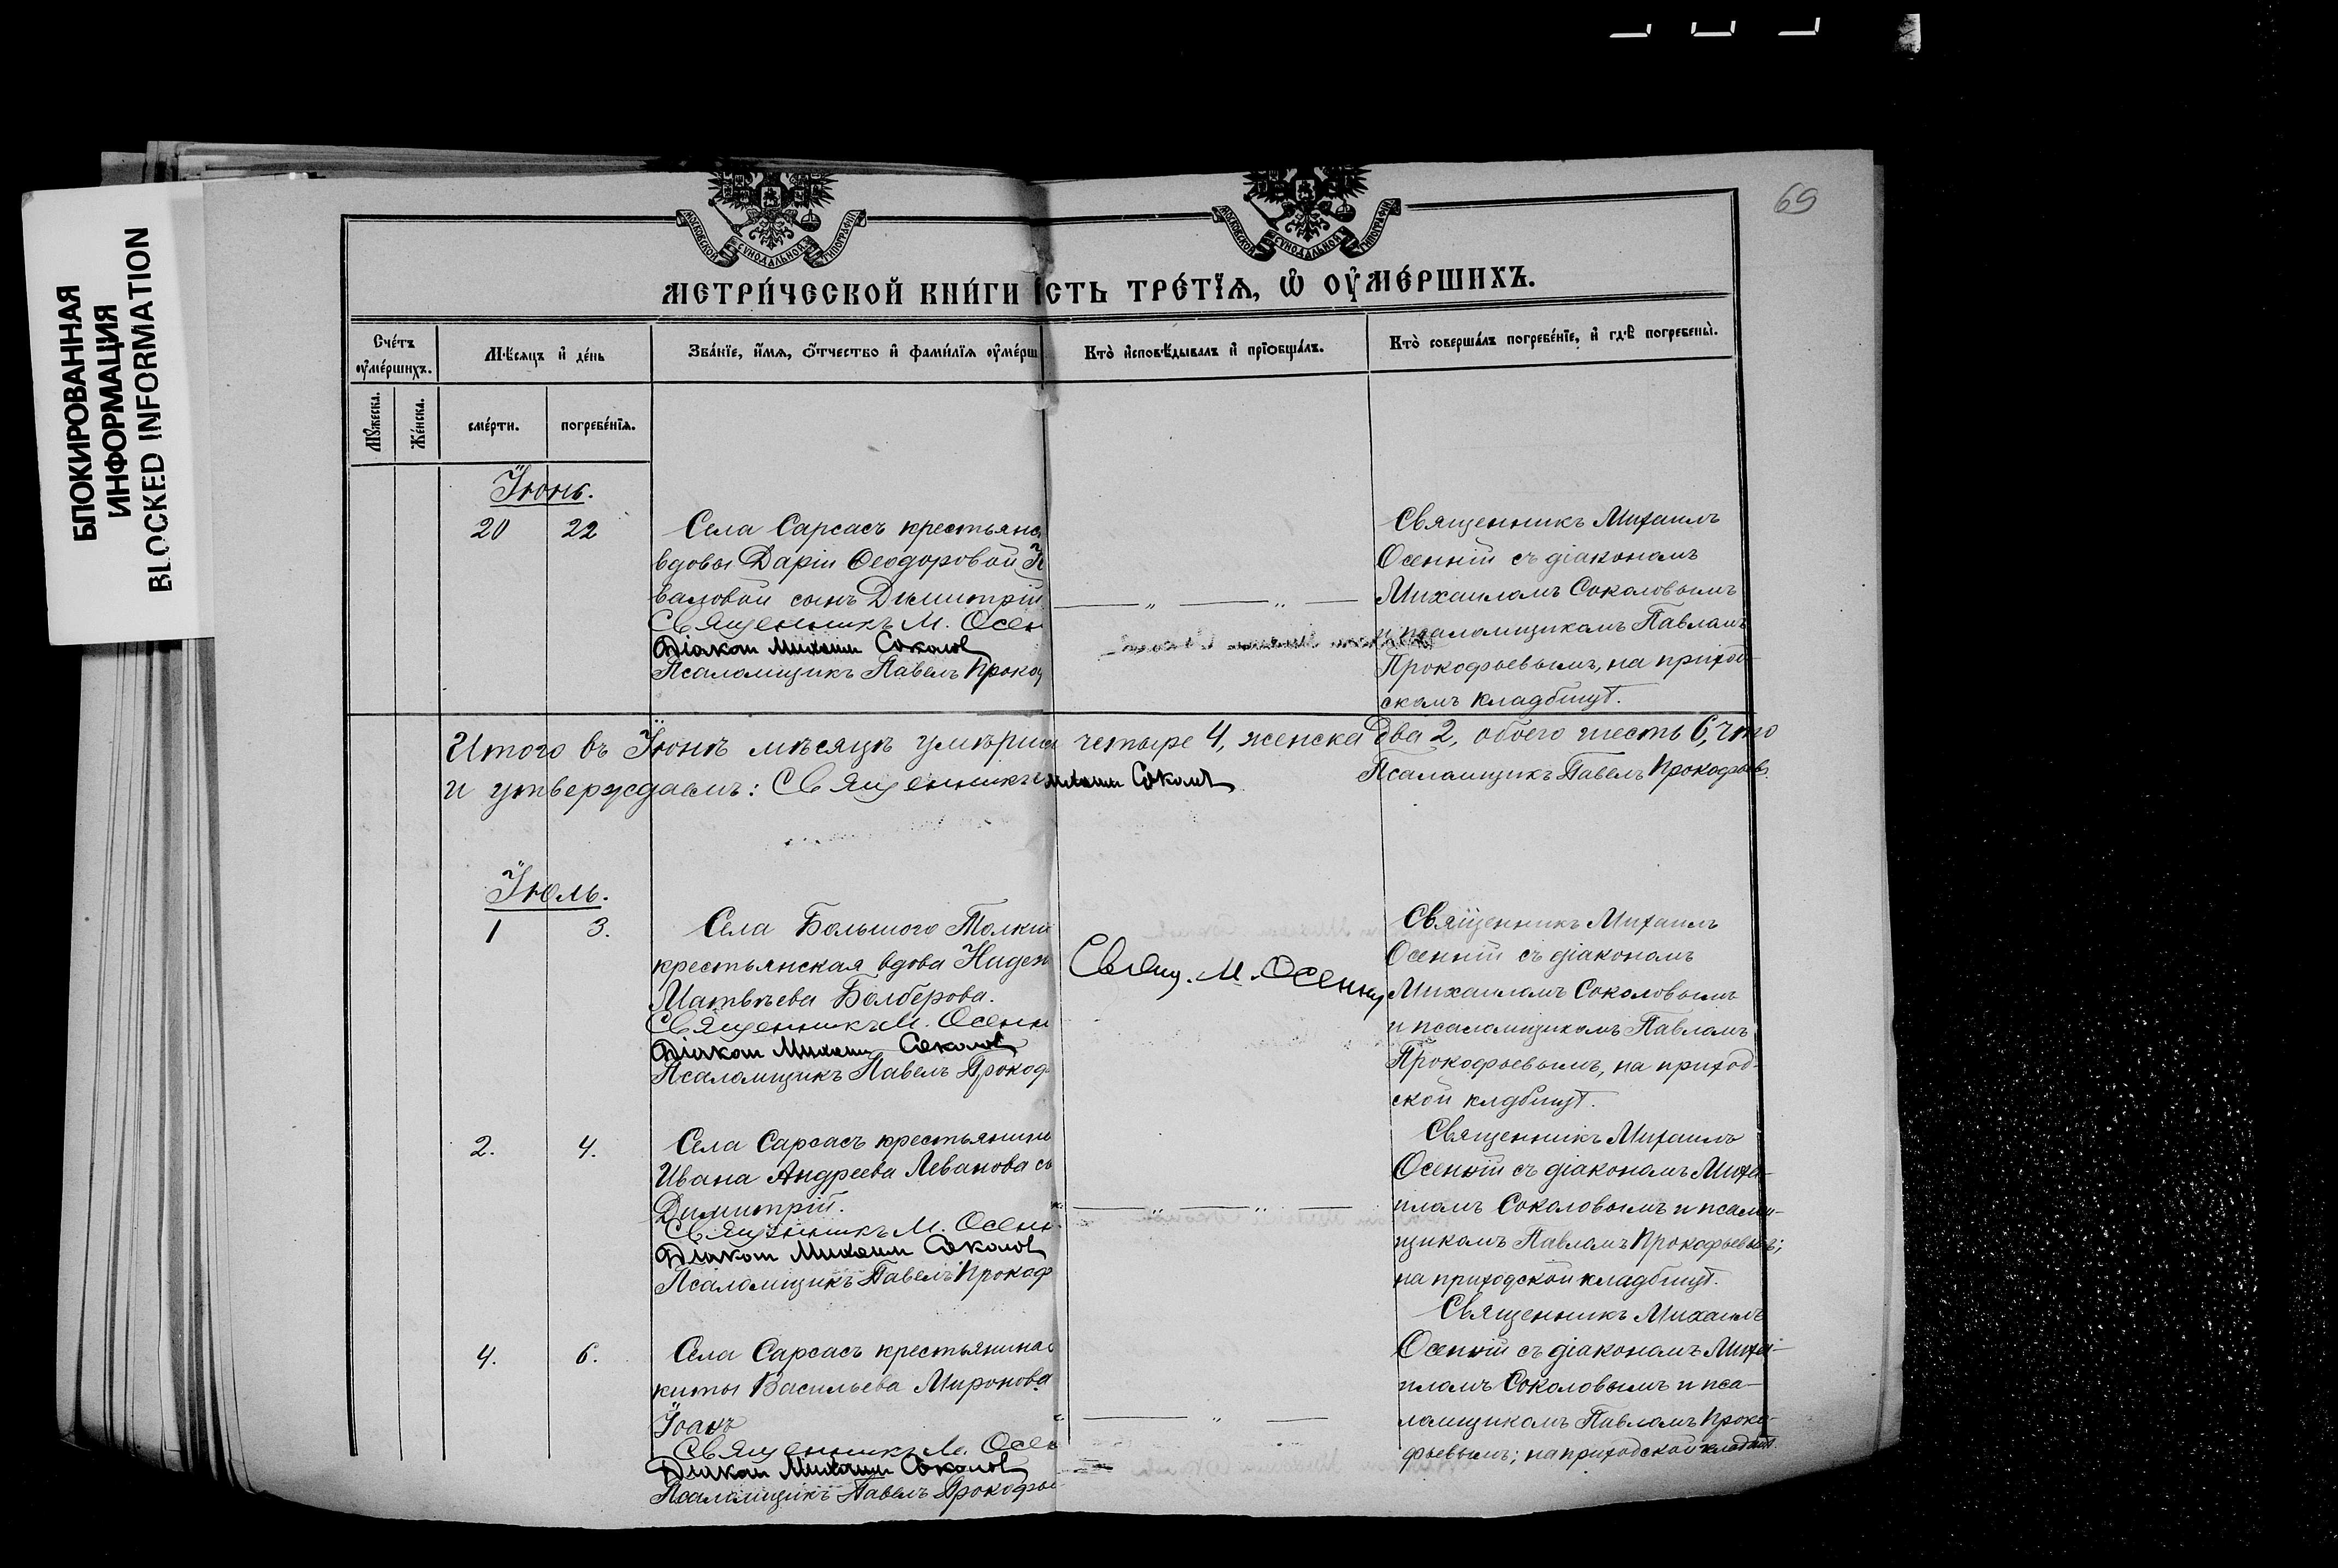 69
БЛОКИРОВАННАЯ
ИНФОРМАЦИЯ
BLOCKED INFORMATION
МОСКОВСКОЙ СУНОДАЛЬНОЙ ТИПОГРАФІИ
МОСКОВСКОЙ СУНОДАЛЬНОЙ ТИПОГРАФІИ
МЕТРИ́ЧЕСКОЙ КНИ́ГИ СТЬ ТРЕ́ТЇѦ, Ѽ ОУ҆МЕ́РШИХЪ.
Сче́тъ оу҆ме́ршихъ.
Мѣ́сяцъ и҆ де́нь
Зва́нїе, и҆́мя, ѻ҆́тчество и҆ фами́лїя оу҆ме́рш
Кто̀ и҆сповѣ́дывалъ и҆ прїѡбща́лъ.
Кто̀ соверша́лъ погребе́нїе, и҆ гдѣ̀ погребены̀.
Му́жеска.
Же́нска.
сме́рти.
погребе́нїя.
Іюнь.
20 22
Села Сарсасъ крестьянс
вдовы Даріи Ѳеодоровой
валовой сынъ Димитрій
Священникъ М. Осен
Діакон Михаил Соколов
Псаломщикъ Павелъ Проко
Священникъ Михаилъ
Осенній съ діакономъ
Михаиломъ Соколовымъ
и псаломщикомъ Павломъ
Прокофьевымъ, на приход-
скомъ кладбищѣ.
Итого въ Іюнѣ мѣсяцѣ умерши четыре 4, женска два 2, обоего шесть 6, что
и утверждаемъ: Священникъ Михаил Соколов Псаломщикъ Павелъ Прокофьев
Іюль.
1 3.
Села Большого Толкиш
крестьянская вдова Надеж
Матвѣева Болберова.
Священникъ М. Осенн
Діакон Михаил Соколов
Псаломщикъ Павелъ Прокоф
Свящ. М. Осенній
Священникъ Михаилъ
Осенній съ діакономъ
Михаиломъ Соколовымъ
и псаломщикомъ Павломъ
Прокофьевымъ, на приход-
ской кладбищѣ.
2. 4.
Села Сарсасъ крестьянин
Ивана Андреева Леванова сы
Димитрій.
Священникъ М. Осенн
Діакон Михаил Соколов
Псаломщикъ Павелъ Прокоф
Священникъ Михаилъ
Осенній съ діакономъ Миха-
иломъ Соколовымъ и псалом-
щикомъ Павломъ Прокофьевымъ;
на приходской кладбищѣ.
4. 6.
Села Сарсасъ крестьянина
киты Васильева Миронова
Іоанъ
Священникъ М. Осен
Діакон Михаил Соколов
Псаломщикъ Павелъ Прокофье
Священникъ Михаилъ
Осенній съ діакономъ Миха-
иломъ Соколовымъ и пса-
ломщикомъ Павломъ Проко-
фьевымъ; на приходской кладбищѣ.